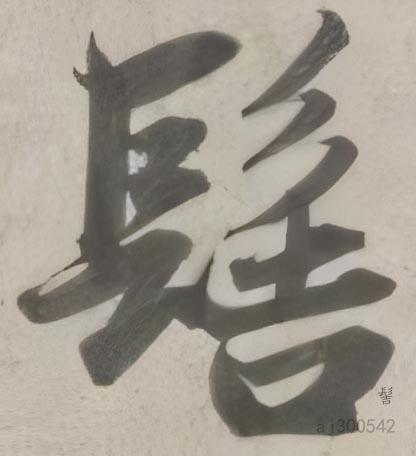 髻
髻
aj300542